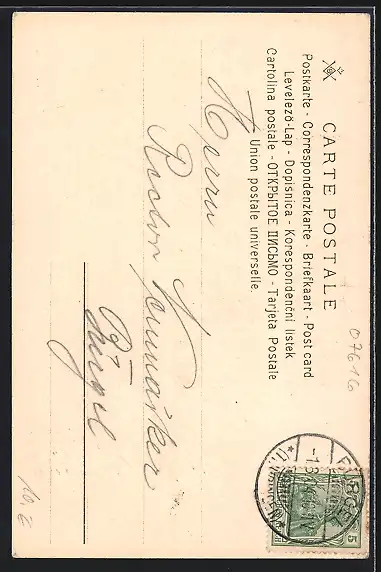 CARTE POSTALE
Postkarte - Correspondenzkarte - Briefkaart - Post card
Levelező-Lap - Dopisnica - Korespondenční listek
Cartolina postale - ОТКРЫТОЕ ПИСЬМО - Tarjeta Postale
Union postale universelle.
Herrn
Rector
in
Bürgel
07616
10.2
5